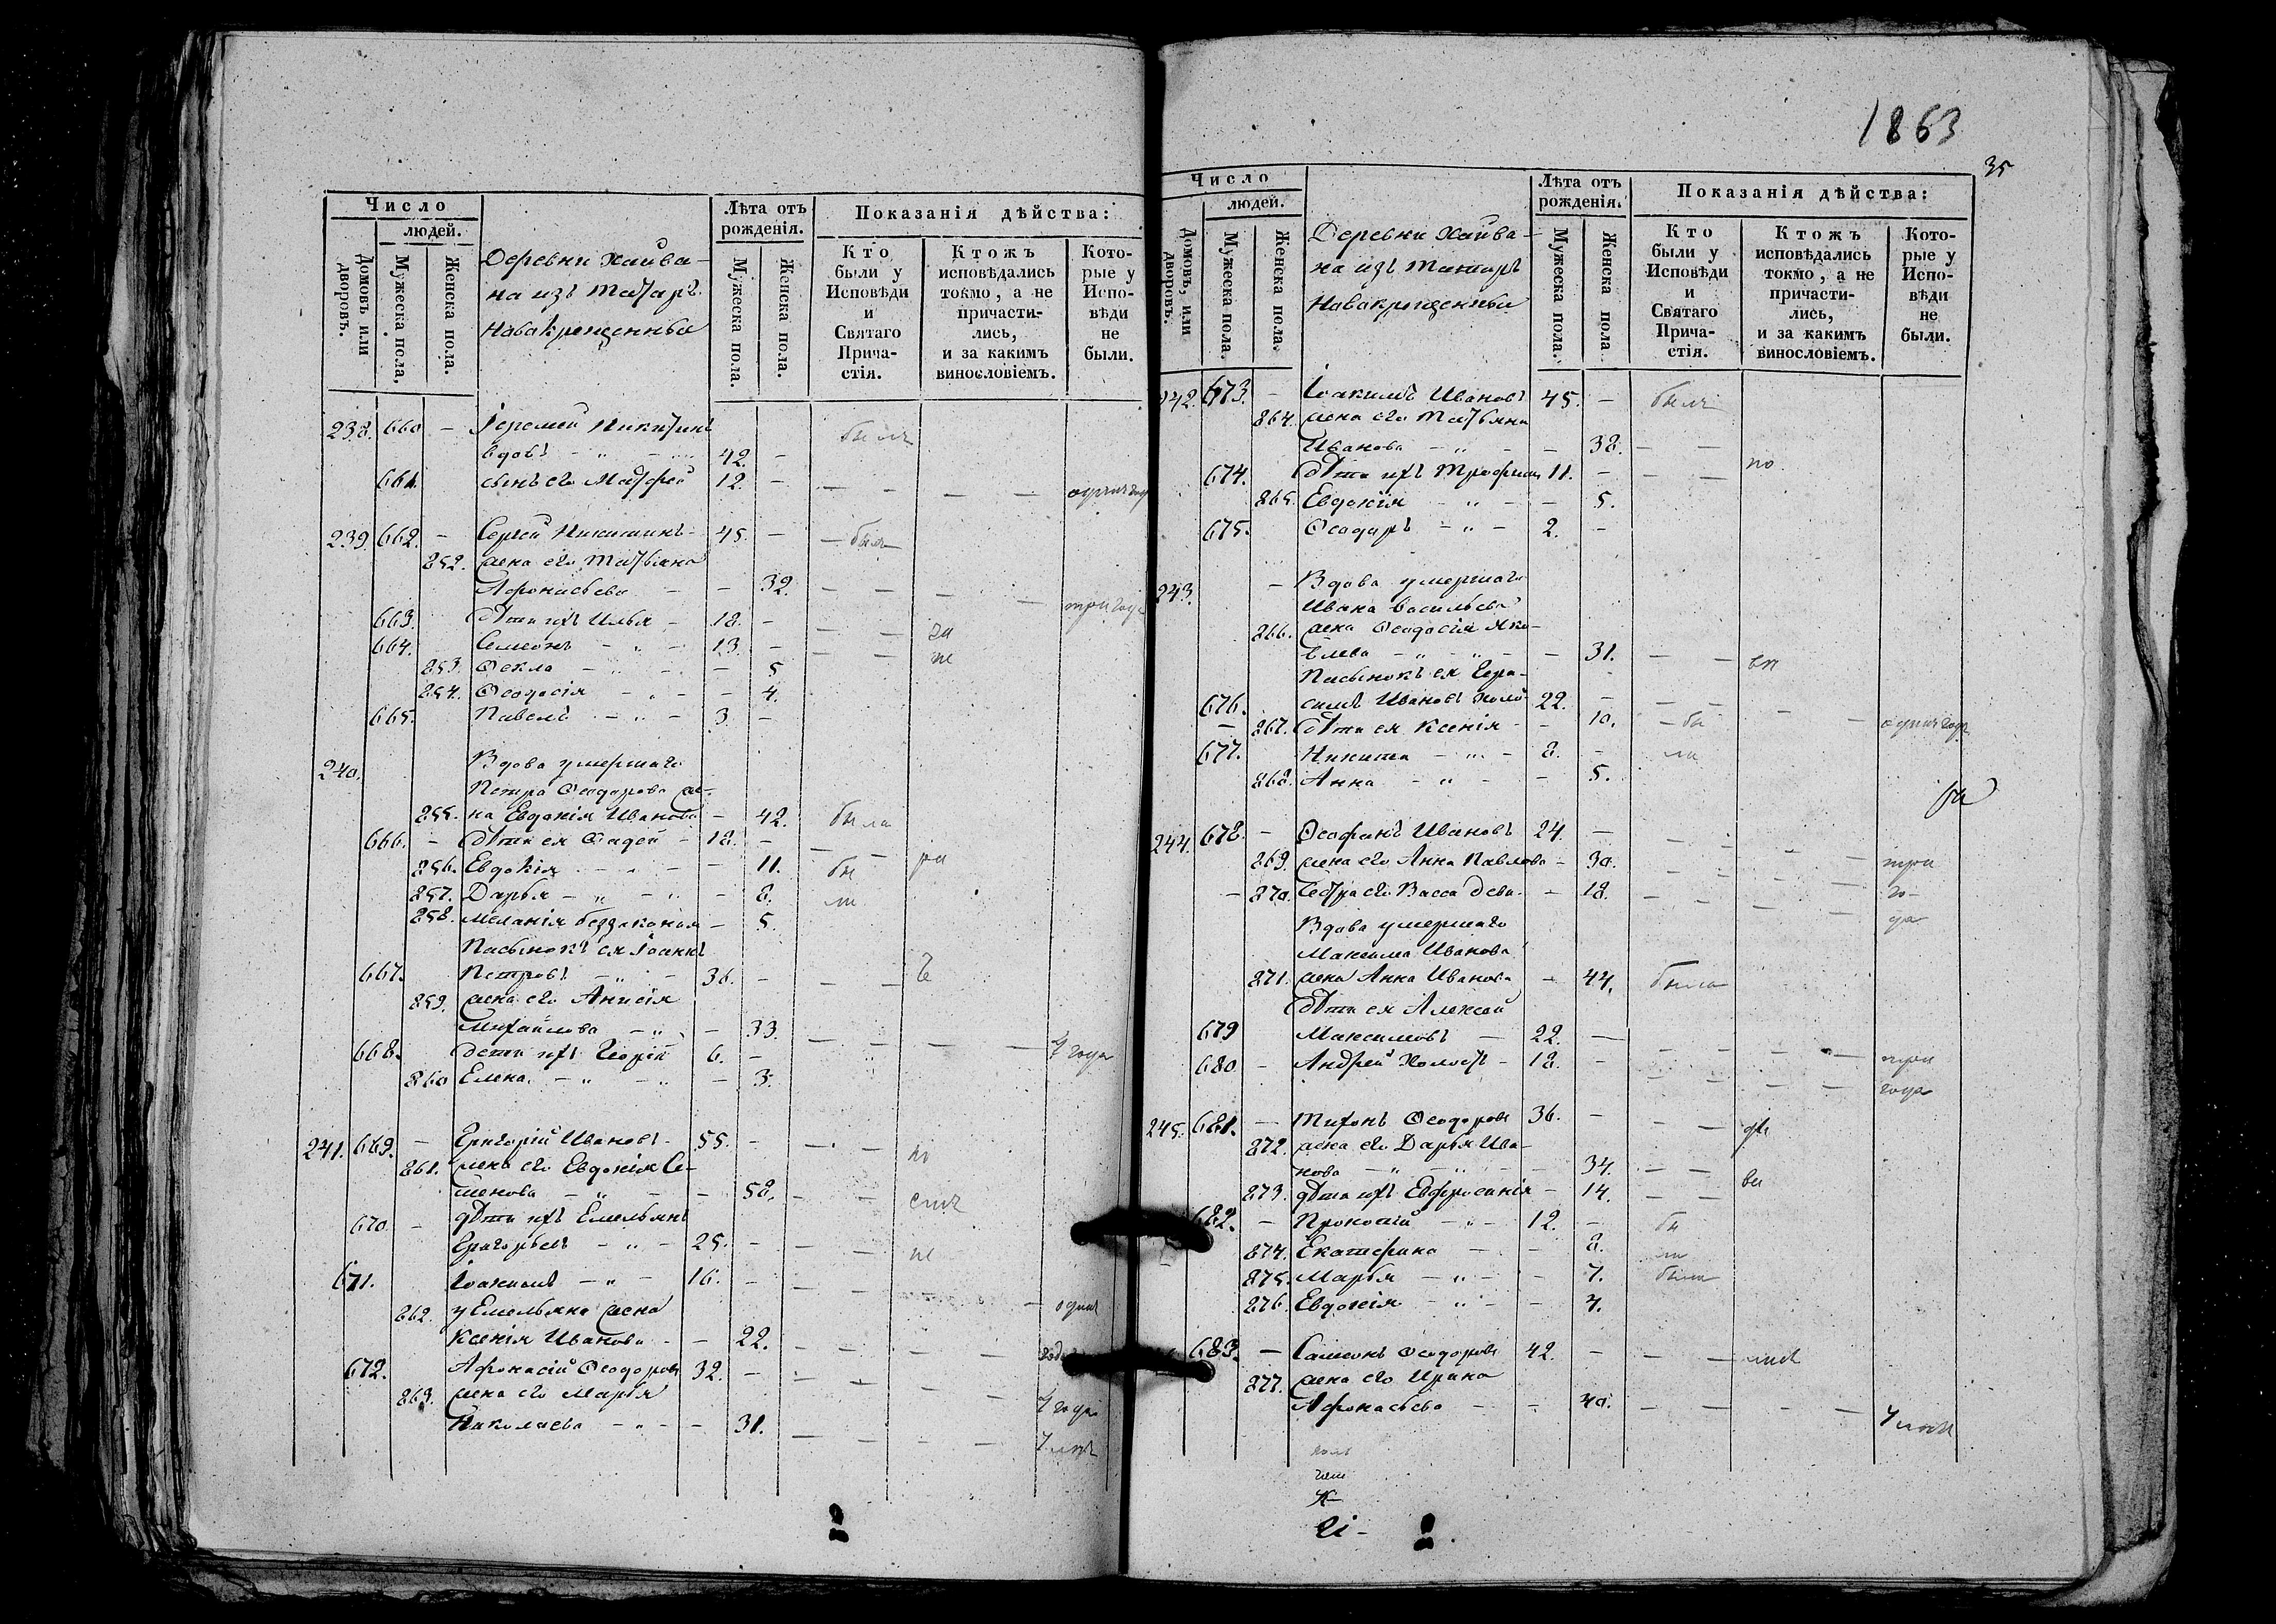 Число
людей.
Домовъ или дворовъ.
Мужеска пола,
Женска пола.
Деревни Хайва-
на изъ Татаръ
Новокрещенныя
Лѣта отъ рожденія.
Мужеска пола.
Женска пола.
Показанія дѣйства:
Кто были у Исповѣди и Святаго Прича-стія.
Ктожъ исповѣдались токмо, а не причасти-лись, и за какимъ винословіемъ.
Кото-рые у Испо-вѣди не были.
238. 660 - Іеремей Никитинъ былъ
вдовъ - " - 42. -
661. сынъ его Матфей 12. - один год
239. 662. - Сергей Никитинъ - 45. - былъ
852. жена его Татьяна
Афонасьева - - 32. три года
663. дѣти ихъ Илья - 18. -
664. Семеонъ - " - 13. -
853. Ѳекла - " - - 5
854. Ѳеодосія - " - - 4.
665. Павелъ - " - 3. -
240. Вдова умершаго
Петра Ѳеодорова же-
855. на Евдокія Иванова - 42. была
666. - дѣти ея Ѳадей - 18. -
856. Евдокія - " - - 11. бы
857. Дарья - " - " - 8. ли
858. Меланія беззаконая - 5.
Пасынокъ ея Іоаннъ
667. Петровъ - " - 36. -
859. жена его Анисія
Михайлова - " - - 33.
668. дети ихъ Георгій 6. - 4 года
860 Елена - " - " - 3.
241. 669. - Григорій Ивановъ - 55. - по
861. жена его Евдокія Се-
менова - " - - 58.
670 - дѣти ихъ Емельянъ
Григорьевъ - " - 25. -
671. Іоакимъ - " - 16. -
862. у Емельяна жена один
Ксенія Иванова - - 22. годъ
672. Афонасій Ѳеодоровъ 32. -
863. жена его Марья 4 года
Николаева - " - - 31.
1863
35
Число
людей.
Домовъ, или дворовъ.
Мужеска пола.
Женска пола.
Деревни Хайва-
на изъ Татаръ
Новокрещенныя
Лѣта отъ рожденія.
Мужеска пола.
Женска пола
Показанія дѣйства:
Кто были у Исповѣди и Святаго Прича-стія.
Ктожъ исповѣдались токмо, а не причасти-лись, и за какимъ винословіемъ.
Кото-рые у Испо-вѣди не были.
242. 673. - Іоакимъ Ивановъ 45. - былъ
864. жена его Татьяна
Иванова - " - - 38. - по
674. дѣти ихъ Трофимъ 11. -
865. Евдокія - " - - 5.
675. Ѳеодоръ - " - 2. -
243. - Вдова умершаго
Ивана Васильева
866. жена Ѳеодосія Яко-
влева - " - " - - 31.
Пасынокъ ея Гера-
676. симъ Ивановъ холо- 22. -
- 867. дѣти ея Ксенія - - 10. - бы один годъ
677. Никита - " - 8. - ли
868. Анна - " - - 5.
244. 678. - Ѳеофанъ Ивановъ 24. -
869. жена его Анна Павлова - 30. три
- 870. Сестра его Васса дева - - 18. го-
Вдова умершаго да
Максима Иванова
871. жена Анна Иванова - 44. была
дѣти ея Алексей
679 Максимовъ - 22. -
680 - Андрей Холостъ - 18. - три
года
245. 681. - Тихонъ Ѳеодоровъ 36. -
872. жена его Дарья Ива-
нова - " - " - - 34.
873. дѣти ихъ Евфросинія - 14.
682. - Прокопій - " - 12. - бы
874. Екатерина - - 8. ли
875. Марья - " - - 7. была
876. Евдокія - " - - 4.
683. - Самеонъ Ѳеодоровъ 42. -
877. жена его Ирина
Афонасьева - - 40.